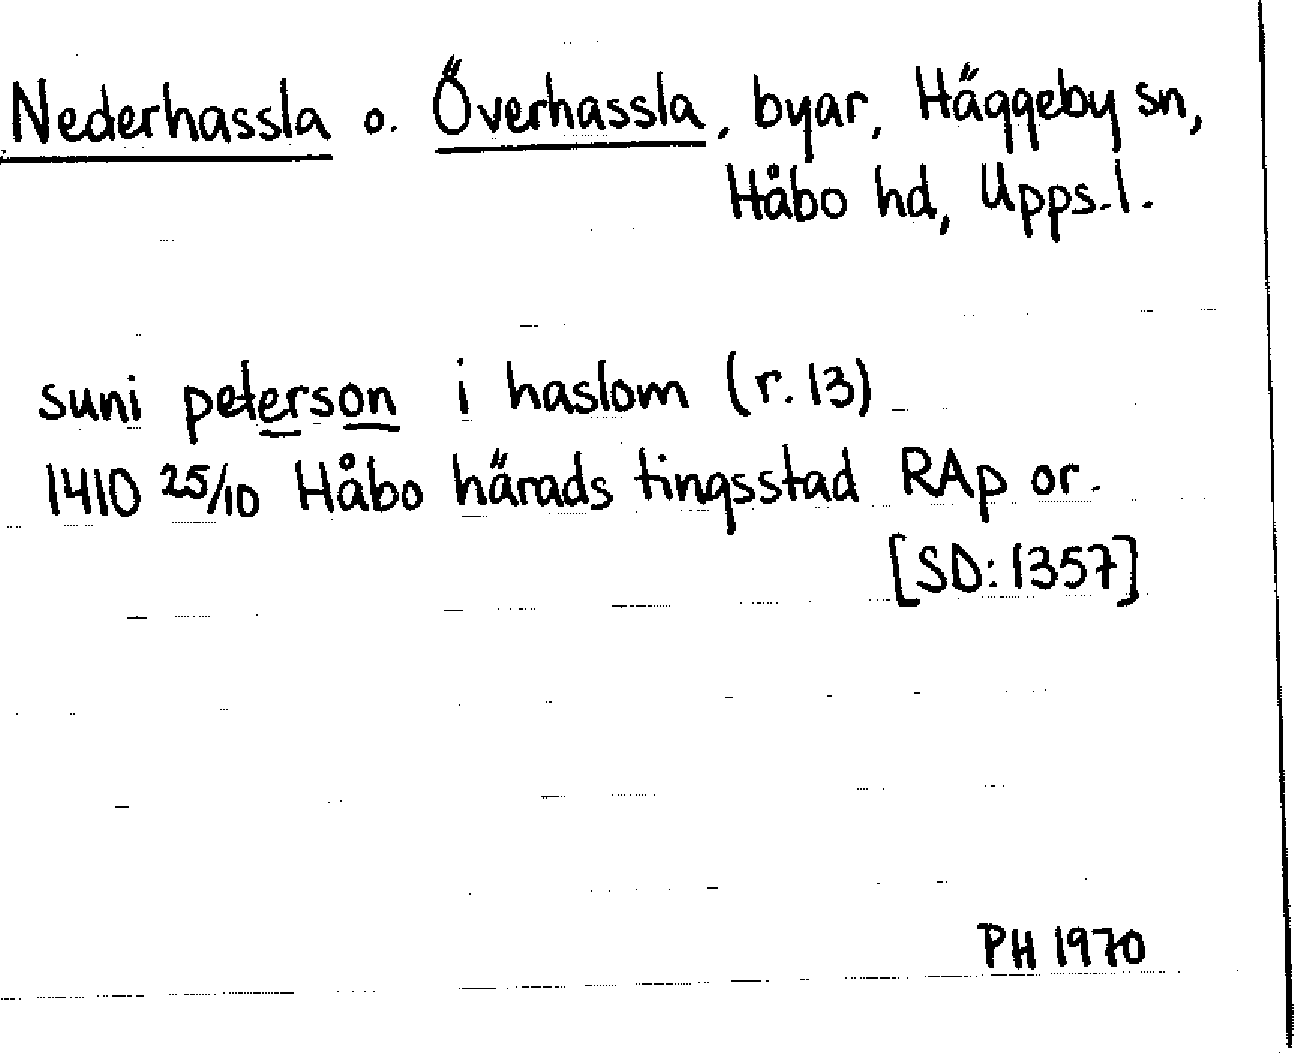 Nederhassla o. Överhassla, byar, Häggeby sn,
Håbo hd, Upps.l.
suni peterson i haslom (r. 13)
1410 25/10 Håbo härads tingsstad RAp or.
[SD: 1357]
PH 1970